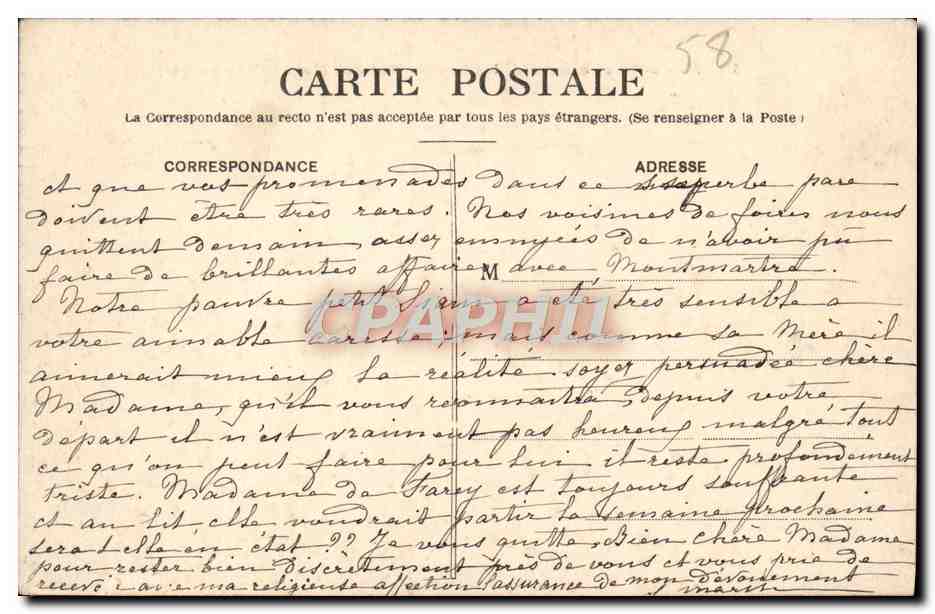 58
CARTE POSTALE
La Correspondance au recto n'est pas acceptée par tous les pays étrangers. (Se renseigner à la Poste)
CORRESPONDANCE
ADRESSE
et que vos promenades dans ce superbe parc
doivent être très rares. Nos voisines de foires nous
quittent demain, assez ennuyées de n'avoir pû
faire de brillantes affaires avec Montmartre.
M
Notre pauvre petit a été très sensible a
votre aimable caresse, mais comme sa Mère il
aimerait mieux la réalité. soyez persuadée chère
Madame, qu'il vous reconnaitra, depuis votre
départ il n'est vraiment pas heureux malgré tout
ce qu'on peut faire pour lui il reste profondément
triste. Madame de Farcy est toujours souffrante
et au lit elle voudrait partir la semaine prochaine
sera t elle en état ?? Je vous quitte, Bien chère Madame
pour rester bien discrètement près de vous et vous prie de
recevoir avec ma religieuse affection l'assurance de mon dévouement
CPAPHIL